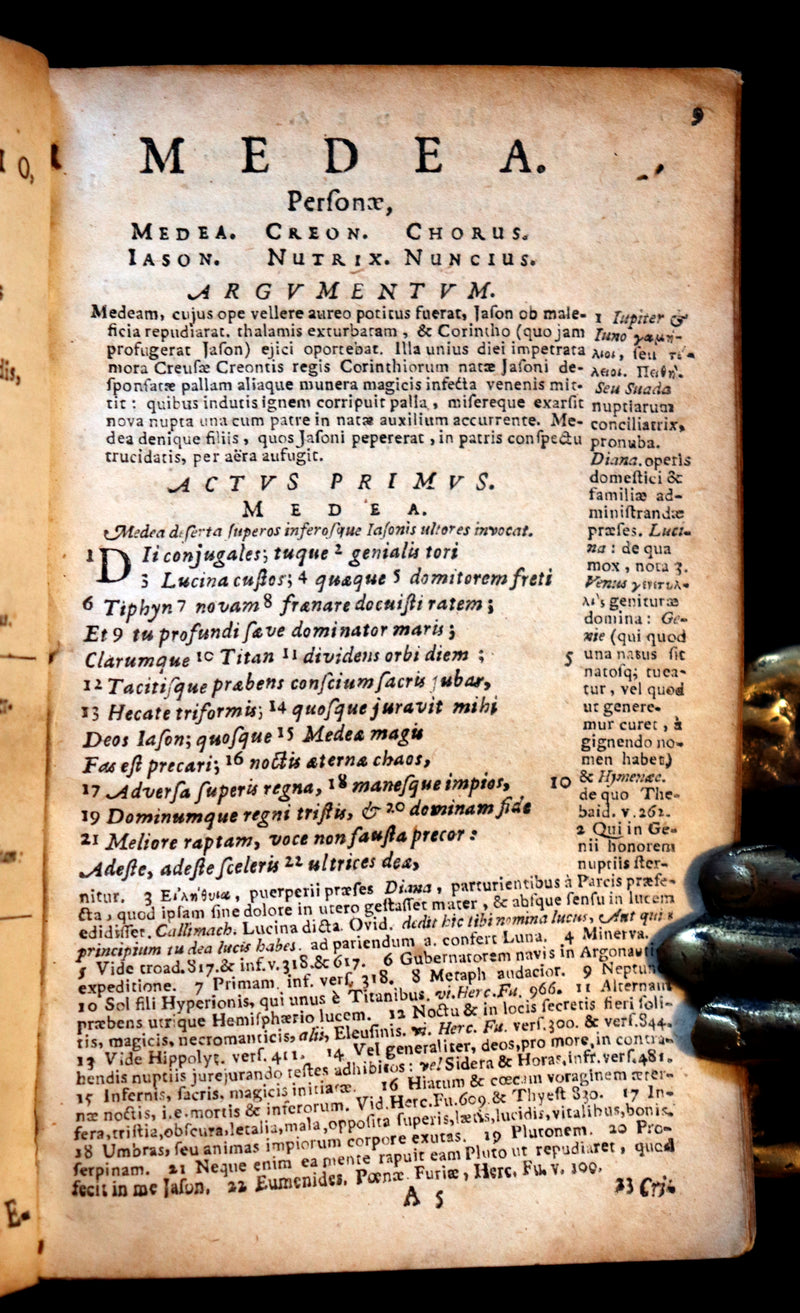 9
M E D E A.
Perſonæ,
MEDEA. CREON. CHORUS.
IASON. NUTRIX. NUNCIUS.
A R G V M E N T V M.
Medeam, cujus ope vellere aureo potitus fuerat, Jaſon ob male-
ficia repudiarat. thalamis exturbatam, & Corintho (quo jam
profugerat Jaſon) ejici oportebat. Illa unius diei impetrata
mora Creuſæ Creontis regis Corinthiorum natæ Jaſoni de-
ſponſatæ pallam aliaque munera magicis infecta venenis mit-
tit: quibus indutis ignem corripuit palla, miſereque exarſit
nova nupta una cum patre in natæ auxilium accurrente. Me-
dea denique filiis, quos Jaſoni pepererat, in patris conſpectu
trucidatis, per aëra aufugit.
A C T V S P R I M V S.
M E D E A.
Medea deſerta ſuperos inferoſque Iaſonis ultores invocat.
1 DIi conjugales; tuque 2 genialis tori
3 Lucina cuſtos; 4 quæque 5 domitorem freti
6 Tiphyn 7 novam 8 frænare docuiſti ratem;
Et 9 tu profundi ſæve dominator maris;
Clarumque 10 Titan 11 dividens orbi diem; 5
12 Tacitiſque præbens conſcium ſacris jubar,
13 Hecate triformis; 14 quoſque juravit mihi
Deos Iaſon; quoſque 15 Medeæ magis
Fas eſt precari; 16 noctis æternæ chaos,
17 Adverſa ſuperis regna, 18 maneſque impios, 10
19 Dominumque regni triſtis, & 20 dominam fide
21 Meliore raptam, voce non fauſta precor:
Adeſte, adeſte ſceleris 22 ultrices deæ,
1 Iupiter &
Iuno γαμή-
λιοι, ſeu τέ-
λειοι. Πειθώ.
Seu Suada
nuptiarum
conciliatrix,
pronuba.
Diana. operis
domeſtici &
familiæ ad-
miniſtrandæ
præſes. Luci-
na: de qua
mox, nota 3.
Venus
genituræ
domina: Ge-
nie (qui quod
una natus ſit
natoſq; tuea-
tur, vel quod
ut genere-
mur curet, à
gignendo no-
men habet)
& Hymenæe.
de quo The-
baid. v. 262.
2 Qui in Ge-
nii honorem
nuptiis ſter-
nitur. 3 Εἰλήθυια, puerperii præſes Diana, parturientibus à Parcis præfe-
cta, quod ipſam ſine dolore in utero geſtaſſet mater, & abſque ſenſu in lucem
edidiſſet. Callimach. Lucina dicta. Ovid. dedit hic tibi nomina lucus, Aut quia
principium tu dea lucis habes. ad pariendum a. confert Luna. 4 Minerva.
5 Vide troad. 817. & inf. v. 318. & 617. 6 Gubernatorem navis in Argonauti
expeditione. 7 Primam. inf. verſ 318. 8 Metaph audacior. 9 Neptun
10 Sol fili Hyperionis, qui unus è Titanibus. vi. Herc. Fu. 966. 11 Alternam
præbens utrique Hemiſphærio lucem. 12 Noctu & in locis ſecretis fieri ſoli-
tis, magicis, necromanticis, alii, Eleuſinis. vi. Herc. Fu. verſ. 300. & verſ. 844.
13 Vide Hippolyt. verſ. 411. 14 Vel generaliter, deos, pro more, in contra-
hendis nuptiis jurejurando teſtes adhibitos: vel Sidera & Horas, infr. verſ. 481.
15 Infernis, ſacris, magicis initiatæ. 16 Hiatum & cœcam voraginem æter-
næ noctis, i.e. mortis & inferorum. Vid. Herc. Fu. 609. & Thyeſt 830. 17 In-
fera, triſtia, obſcura, letalia, mala, oppoſita ſuperis, lætis, lucidis, vitalibus, bonis.
18 Umbras, ſeu animas impiorum corpore exutas. 19 Plutonem. 20 Pro-
ſerpinam. 21 Neque enim ea mente rapuit eam Pluto ut repudiaret, quod
fecit in me Jaſon. 22 Eumenides. Pœnæ. Furiæ, Herc. Fu. v. 100.
A 5
23 Cri-